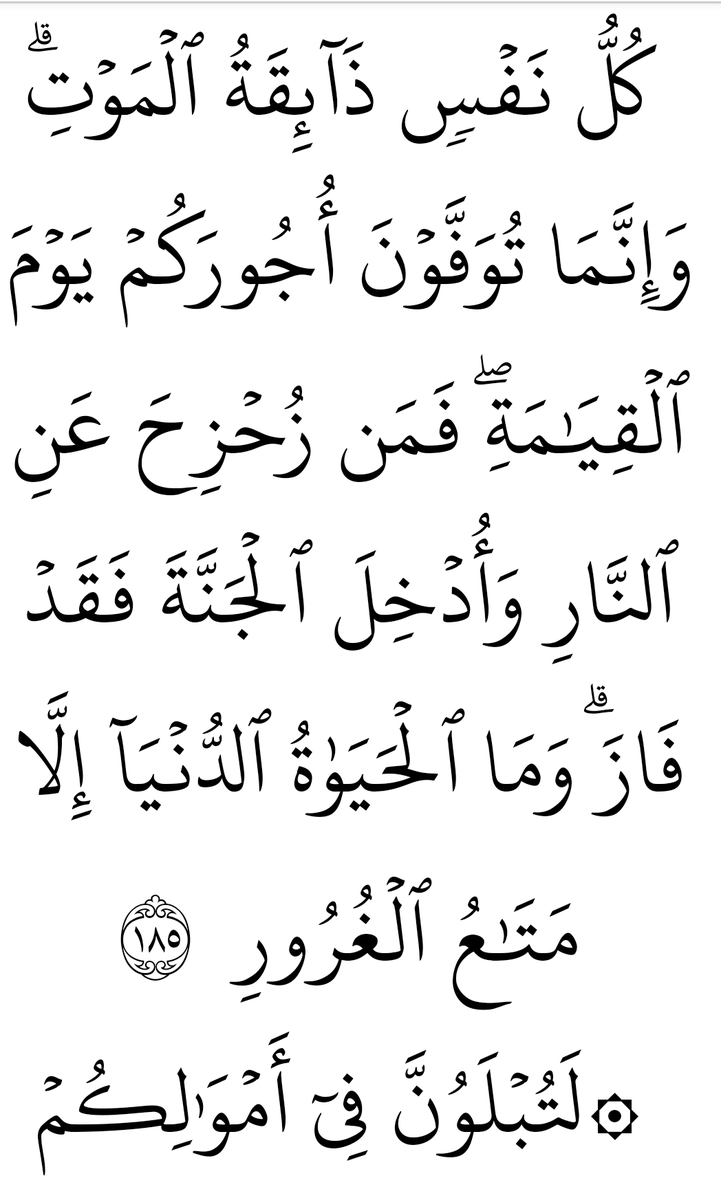 كُلُّ نَفۡسٖ ذَآئِقَةُ ٱلۡمَوۡتِۗ
وَإِنَّمَا تُوَفَّوۡنَ أُجُورَكُمۡ يَوۡمَ
ٱلۡقِيَٰمَةِۖ فَمَن زُحۡزِحَ عَنِ
ٱلنَّارِ وَأُدۡخِلَ ٱلۡجَنَّةَ فَقَدۡ
فَازَۗ وَمَا ٱلۡحَيَوٰةُ ٱلدُّنۡيَآ إِلَّا
مَتَٰعُ ٱلۡغُرُورِ ١٨٥
۞لَتُبۡلَوُنَّ فِيٓ أَمۡوَٰلِكُمۡ